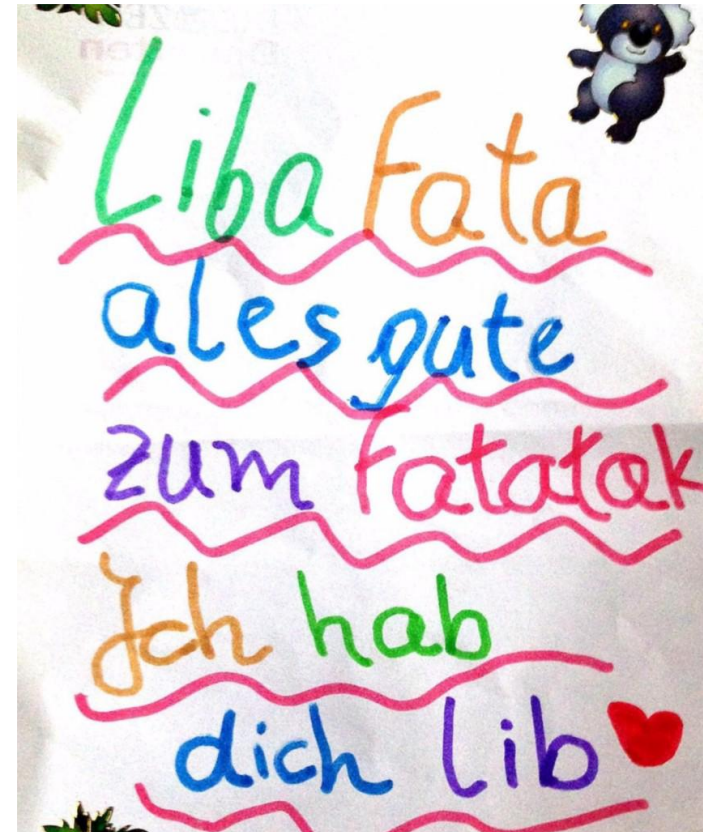 Liba Fata
ales gute
zum fatatak
Ich hab
dich lib